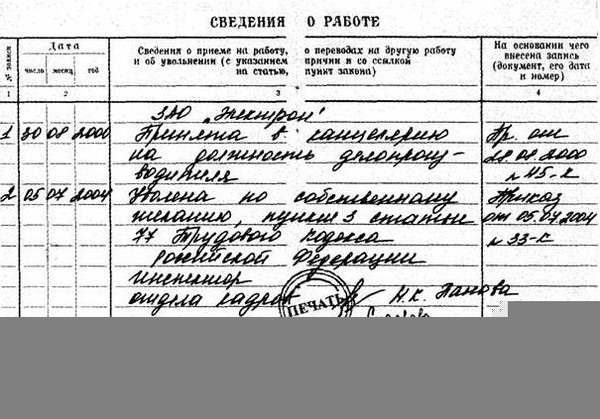 СВЕДЕНИЯ О РАБОТЕ
№ записи
Дата
число месяц год
Сведения о приеме на работу, о переводах на другую работу
и об увольнении (с указанием причин и со ссылкой
на статью, пункт закона)
На основании чего
внесена запись
(документ, его дата
и номер)
1 2 3 4
ЗАО „Электрон"
1 30 08 2000 Принята в канцелярию Пр. от
на должность делопроиз- 28.08.2000
водителя №45-к
2 05 07 2004 Уволена по собственному Приказ
желанию, пункт 3 статьи от 05.07.2004
77 Трудового кодекса №33-к
Российской Федерации
Инспектор
отдела кадров Н.К. Панова
ПЕЧАТЬ